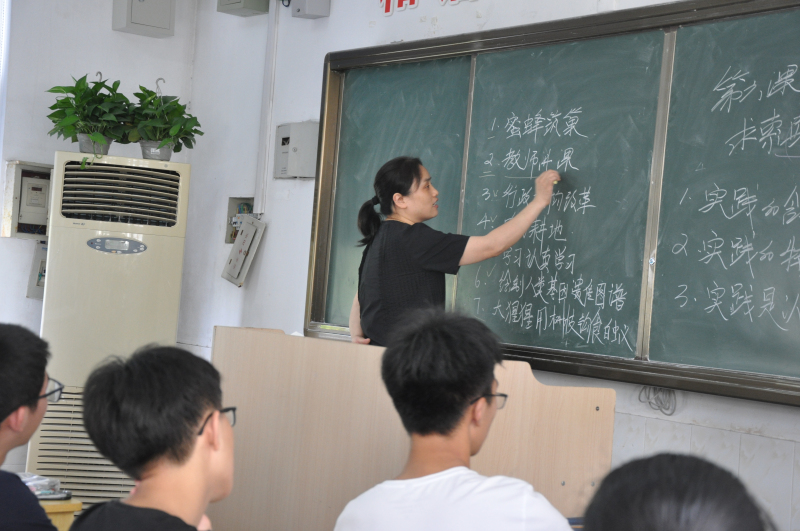 1. 蜜蜂筑巢
2. 教师上课
3. 行政机构改革
4. 耕地
5. 学习认真学习
6. 绘制人类基因变化图谱
7. 大猩猩用树枝钓食白蚁
第六课
求索真
1. 实践的含
2. 实践的
3. 实践是认